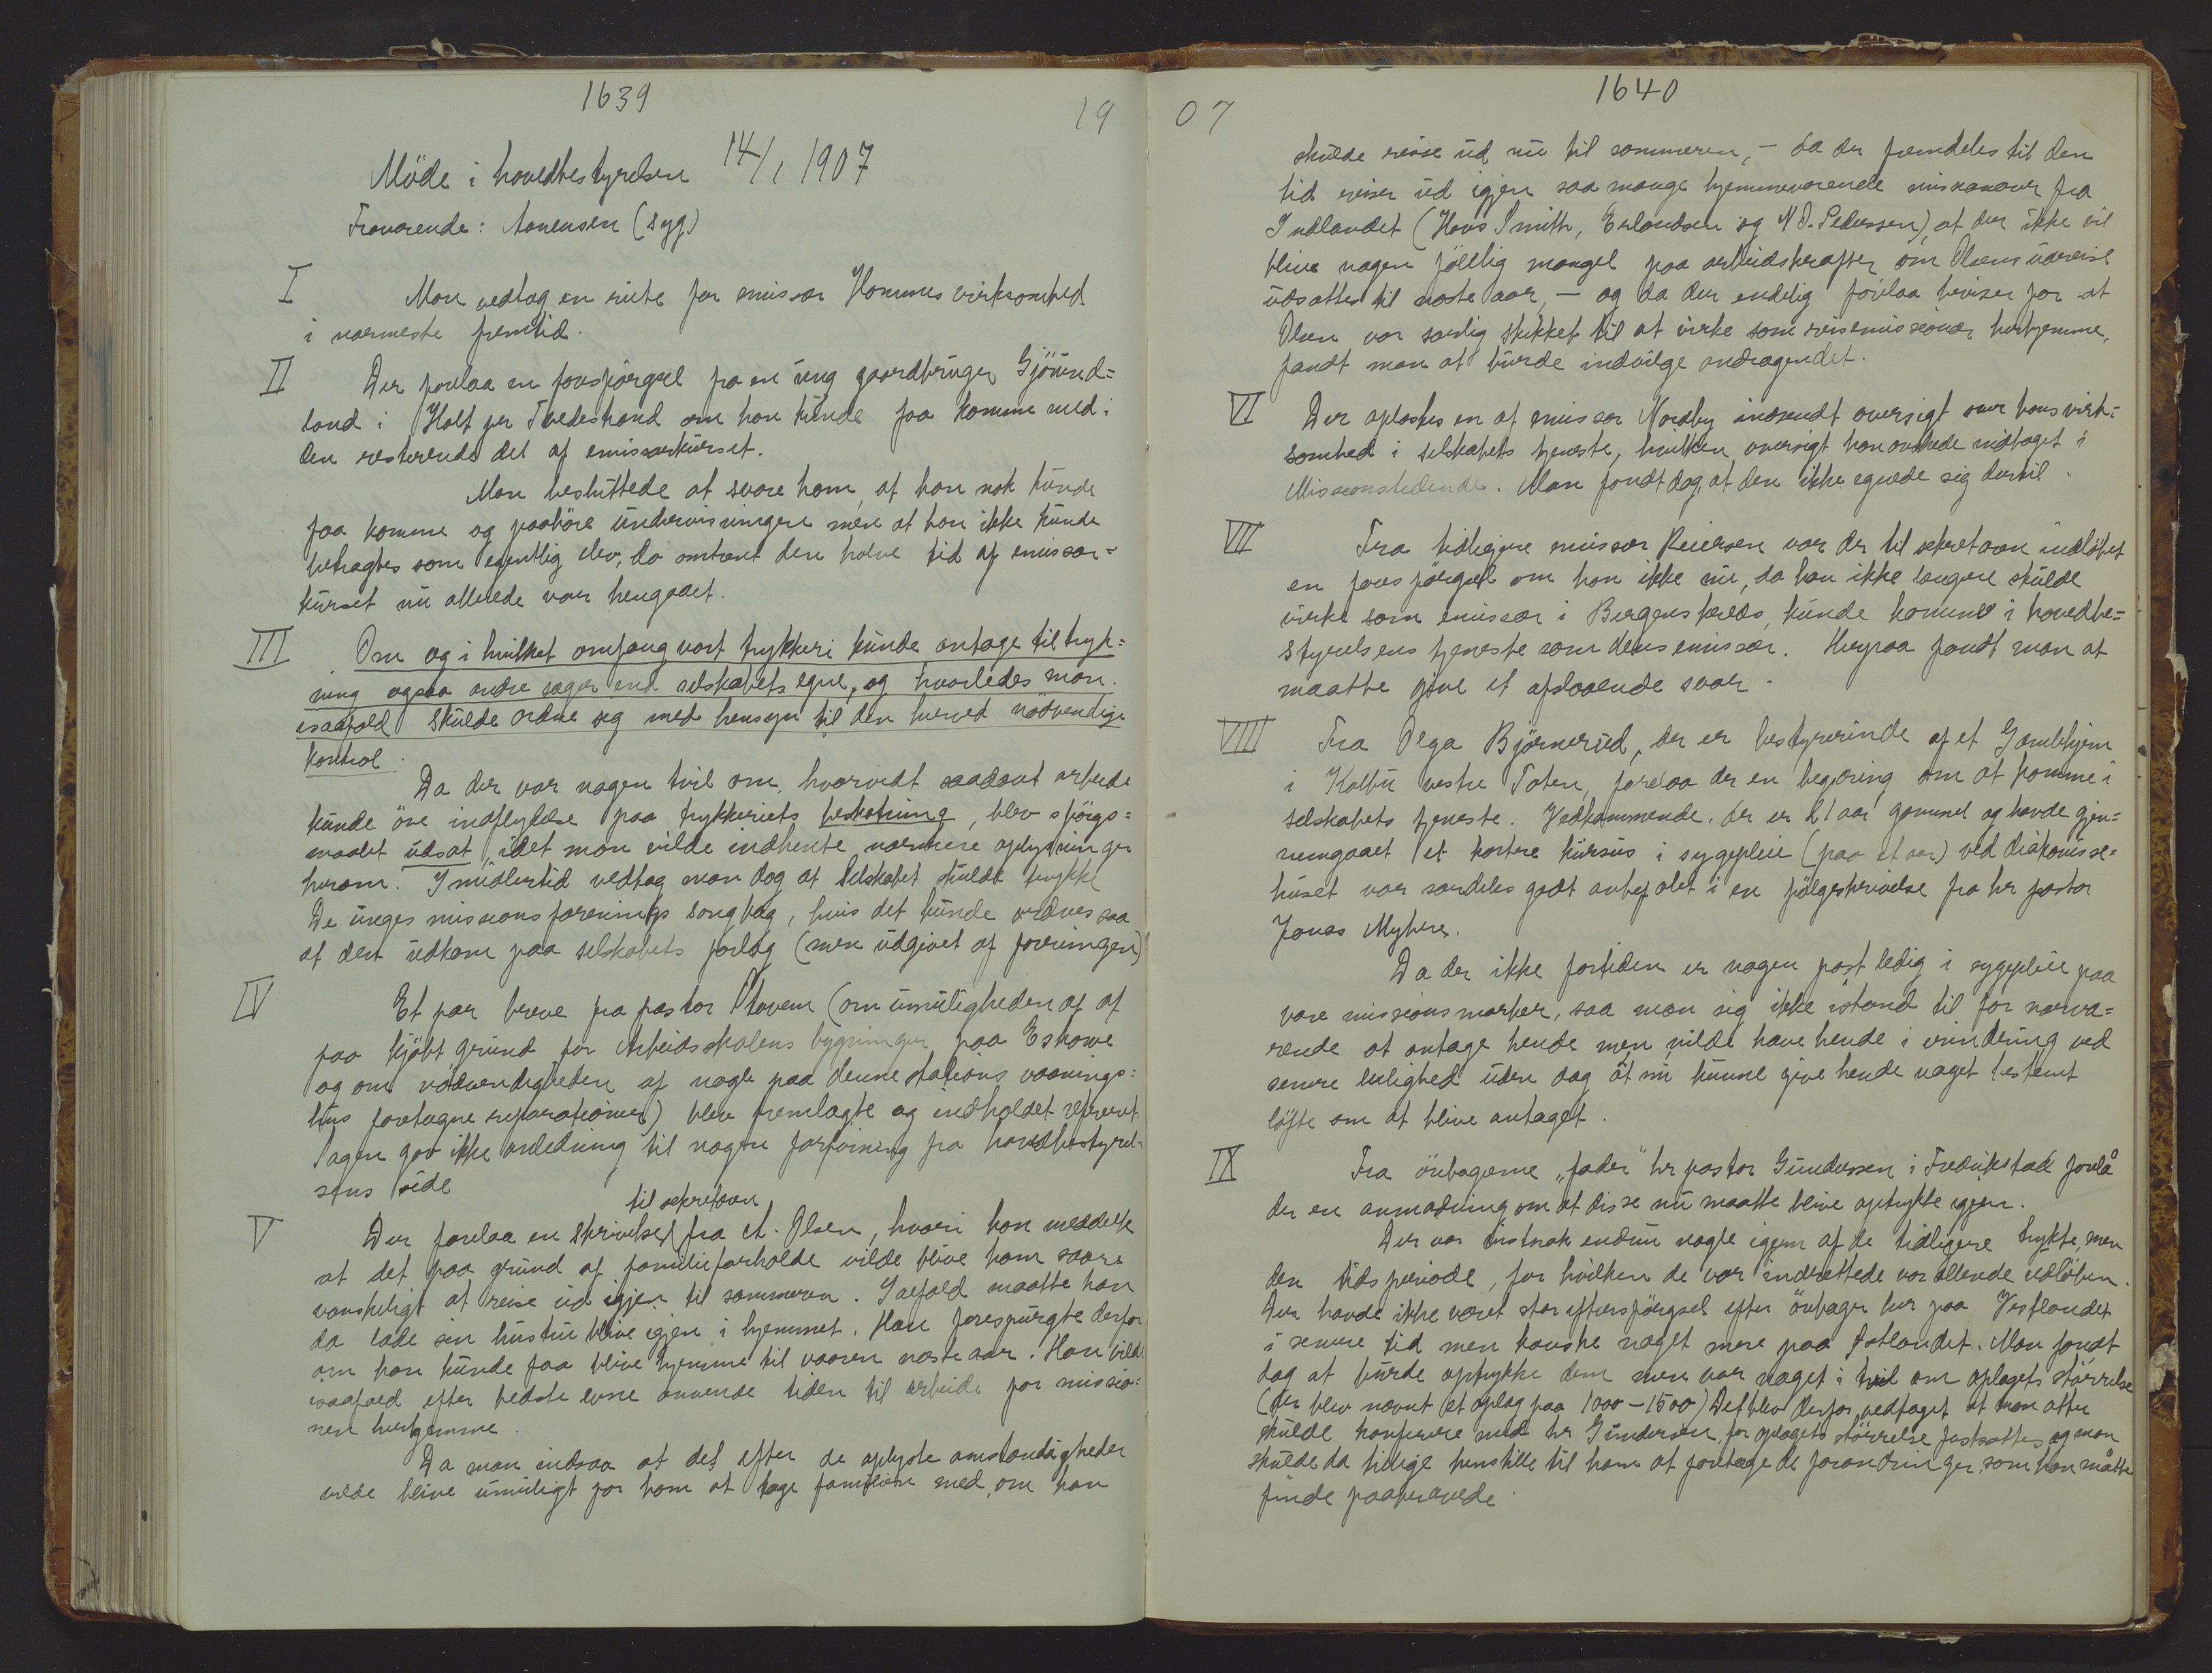 1639
19
Möde i hovedbestyrelsen 14/1 1907
Fraværende: Aanensen (syg)
I Man vedtog en rute for emissær Hommes virksomhed
i nærmeste fremtid.
II Der forelaa en forespörgsel fra en ung gaardbruger Gjöund=
land i Holt pr Tvedestrand om han kunde faa komme med i
den resterende del af emissærkurset.
Man besluttede at svare ham, at han nok kunde
faa komme og paahöre undervisningen men at han ikke kunde
betragtes som egentlig elev, da omtrent den halve tid af emissær=
kurset nu allerede var hengaaet.
III Om og i hvilket omfang vort trykkeri kunde antage til tryk=
ning ogsaa andre sager end selskabets egne, og hvorledes man
isaafald skulde ordne sig med hensyn til den herved nödvendige
kontrol.
Da der var nogen tvil om, hvorvidt saadant arbeide
kunde öve indflydelse paa trykkeriets beskatning, blev spörgs=
maalet udsat, idet man vilde indhente nærmere oplysninger
herom. Imidlertid vedtog man dog at Selskabet skulde trykke
De unges missionsforenings sangbog, hvis det kunde ordnes saa
at den udkom paa selskabets forlag (men udgivet af foreningen)
IV Et par breve fra pastor Stavem (om umuligheden af at
faa kjöbt grund for Arbeidsskolens bygninger paa Eshowe
og om nödvendigheden af nogle paa denne stations vaanings=
hus foretagne reparationer) blev fremlagte og indholdet refereret.
Sagen gav ikke anledning til nogen forföining fra hovedbestyrel=
sens side
til sekretæren
V Der forelaa en skrivelse fra A. Olsen, hvori han meddelte
at det paa grund af familieforholde vilde blive ham saare
vanskeligt at reise ud igjen til sommeren. Isaafald maatte han
da lade sin hustru blive igjen i hjemmet. Han forespurgte derfor
om han kunde faa blive hjemme til vaaren næste aar. Han vilde
isaafald efter bedste evne anvende tiden til arbeide for missio=
nen herhjemme.
Da man indsaa at det efter de oplyste omstændigheder
vilde blive umuligt for ham at tage familien med, om han
1640
07
skulde reise ud nu til sommeren, – da der fremdeles til den
tid reiser ud igjen saa mange hjemmeværende missionærer fra
Indlandet (Hans Smith, Erlandsen og N. D. Pedersen), at der ikke vil
blive nogen fölelig mangel paa arbeidskræfter, om Olsens udreise
udsattes til næste aar, – og da der endelig forelaa beviser for at
Olsen var særlig skikket til at virke som reisemissionær herhjemme,
fandt man at burde indvilge andragendet.
VI Der oplæstes en af emissær Nordby indsendt oversigt over hans virk=
somhed i selskabets tjeneste, hvilken oversigt han önskede indtaget i
Missionstidende. Man fandt dog, at den ikke egnede sig dertil.
VII Fra tidligere emissær Reiersen var der til sekretæren indlöbet
en forespörgsel om han ikke nu, da han ikke længere skulde
virke som emissær i Bergens kreds, kunde komme i hovedbe=
styrelsens tjeneste som dens emissær. Herpaa fandt man at
maatte give et afslaaende svar.
VIII Fra Olga Björnerud, der er bestyrerinde af et Gamlehjem
i Kolbu vestre Toten, forelaa der en begjæring om at komme i
selskabets tjeneste. Vedkommende, der er 21 aar gammel og havde gjen=
nemgaaet et kortere kursus i sygepleie (paa et aar) ved diakonisse=
huset var særdeles godt anbefalet i en fölgeskrivelse fra hr pastor
Jonas Myhre.
Da der ikke fortiden er nogen post ledig i sygepleie paa
vore missionsmarker, saa man sig ikke istand til for nærvæ=
rende at antage hende men vilde have hende i erindring ved
senere leilighed uden dog at nu kunne give hende noget bestemt
löfte om at blive antaget.
IX Fra önbagerne „fader" hr pastor Gundersen i Fredrikstad forelå
der en anmodning om at disse nu maatte blive optrykte igjen.
Der var vistnok endnu nogle igjen af de tidligere trykte, men
den tidsperiode, for hvilken de var indrettede var allerede udlöben.
Der havde ikke været stor efterspörgsel efter önbager her paa Vestlandet
i senere tid men kanske noget mere paa Östlandet. Man fandt
dog at burde optrykke dem men var noget i tvil om oplagets störrelse
(der blev nævnt et oplag paa 1000–1500) Det blev derfor vedtaget at man atter
skulde konferere med hr Gundersen, för oplagets störrelse fastsattes, og man
skulde da tillige henstille til ham at foretage de forandringer, som han måtte
finde paakrævede.